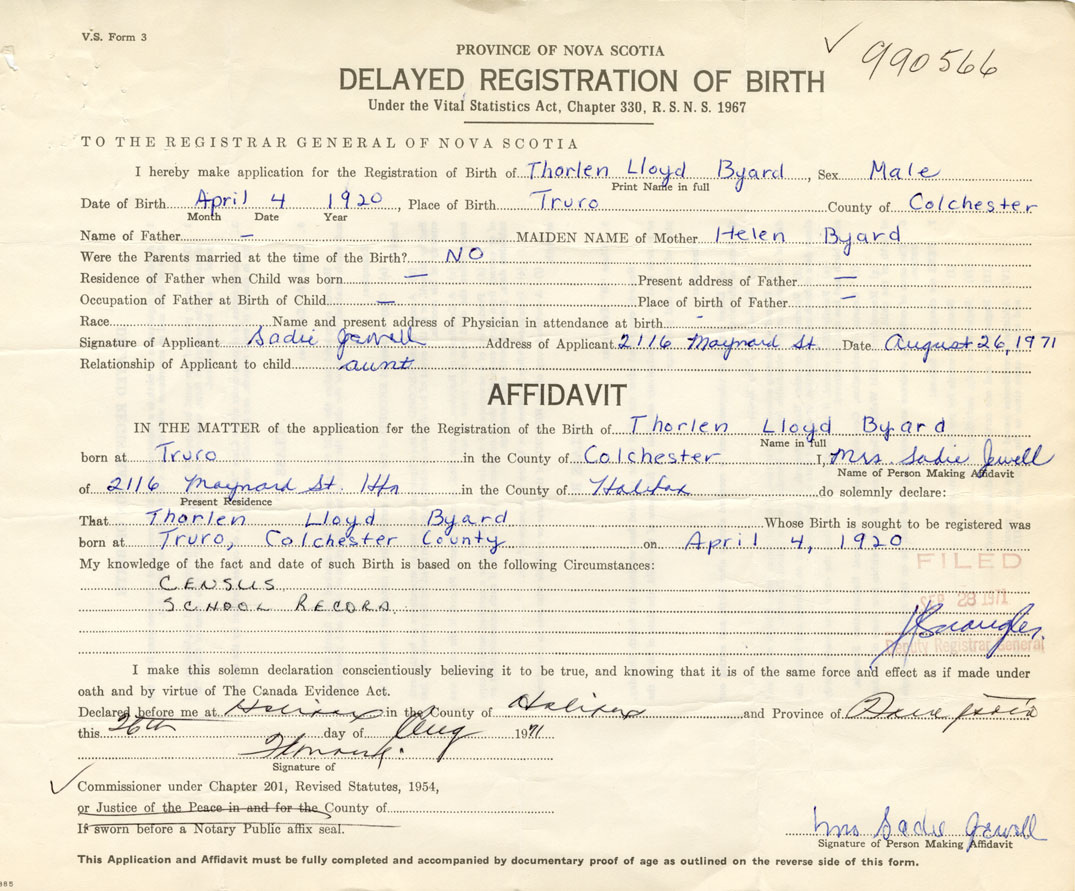 V.S. Form 3
PROVINCE OF NOVA SCOTIA
990566
DELAYED REGISTRATION OF BIRTH
Under the Vital Statistics Act, Chapter 330, R. S. N. S. 1967
TO THE REGISTRAR GENERAL OF NOVA SCOTIA
I hereby make application for the Registration of Birth of Thorlen Lloyd Byard, Sex Male
Print Name in full
Date of Birth April 4 1920, Place of Birth Truro County of Colchester
Month Date Year
Name of Father – MAIDEN NAME of Mother Helen Byard
Were the Parents married at the time of the Birth? NO
Residence of Father when Child was born — Present address of Father —
Occupation of Father at Birth of Child — Place of birth of Father –
Race Name and present address of Physician in attendance at birth -
Signature of Applicant Sadie Jewell Address of Applicant 2116 Maynard St. Date August 26, 1971
Relationship of Applicant to child aunt
AFFIDAVIT
IN THE MATTER of the application for the Registration of the Birth of Thorlen Lloyd Byard
Name in full
born at Truro in the County of Colchester I, Mrs Sadie Jewell
Name of Person Making Affidavit
of 2116 Maynard St. Hfx in the County of Halifax do solemnly declare:
Present Residence
That Thorlen Lloyd Byard Whose Birth is sought to be registered was
born at Truro, Colchester County on April 4, 1920
My knowledge of the fact and date of such Birth is based on the following Circumstances:
FILED
CENSUS
SCHOOL RECORD
SEP 28 1971
Deputy Registrar General
I make this solemn declaration conscientiously believing it to be true, and knowing that it is of the same force and effect as if made under
oath and by virtue of The Canada Evidence Act.
Declared before me at Halifax in the County of Halifax and Province of Nova Scotia
this 26th day of Aug 1971
Signature of
Commissioner under Chapter 201, Revised Statutes, 1954,
or Justice of the Peace in and for the County of
If sworn before a Notary Public affix seal.
Mrs Sadie Jewell
Signature of Person Making Affidavit
This Application and Affidavit must be fully completed and accompanied by documentary proof of age as outlined on the reverse side of this form.